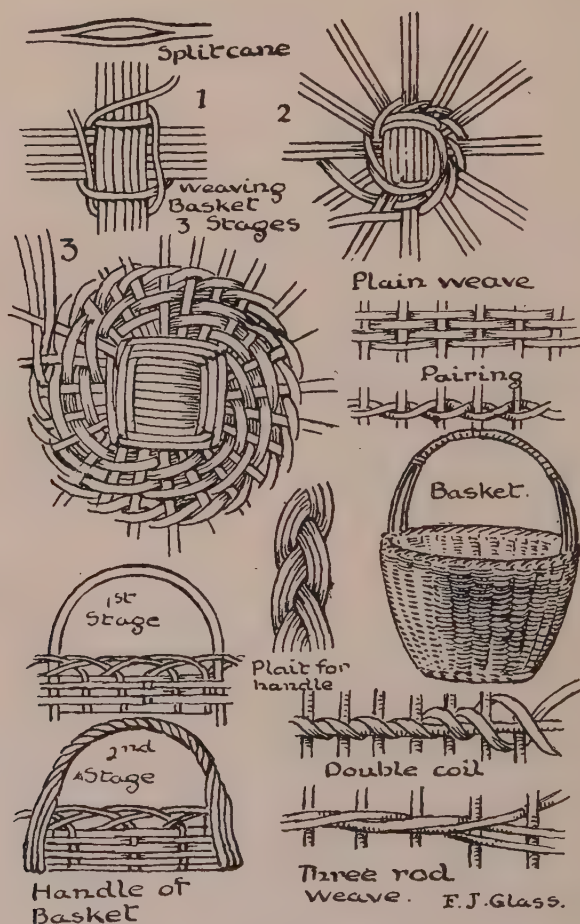 Split cane
1
2
Weaving
Basket
3 Stages
3
Plain weave
Pairing
Basket.
1st
Stage
Plait for
handle
2nd
Stage
Double coil
Handle of
Basket
Three rod
weave.
F.J.Glass.